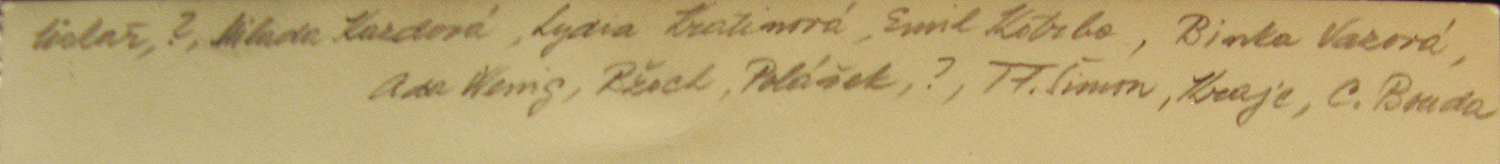 ?, Milada Kazdová, Lydia Kratinová, Emil Kotrba, Binka Vazová,
Ada Wenig, Ržoch, Polášek, ?, T.F. Šimon, Kraje, C. Bouda